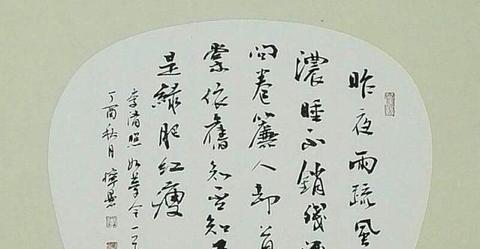 昨夜雨疏風
濃睡不銷殘酒
問卷簾人却道
棠依舊知否知否
是綠肥紅瘦
李清照如夢令一
丁酉秋月